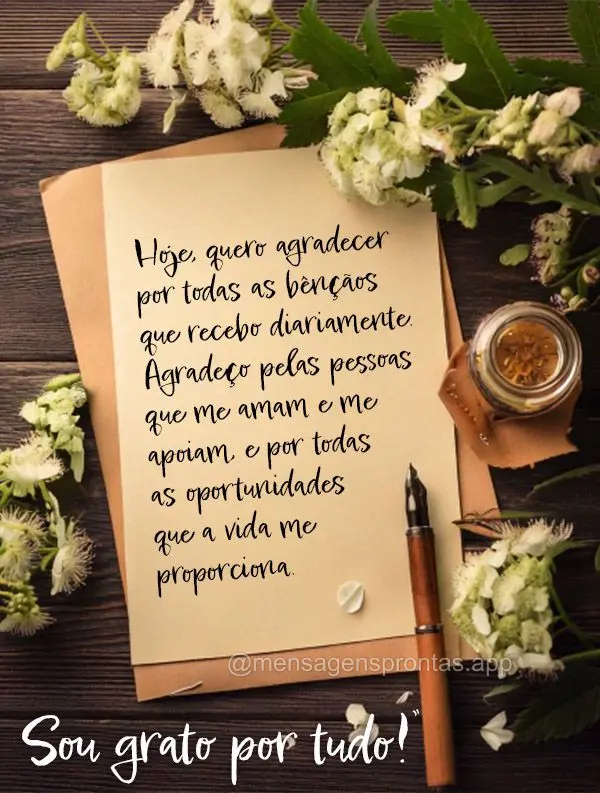 Hoje, quero agradecer
por todas as bênçãos
que recebo diariamente.
Agradeço pelas pessoas
que me amam e me
apoiam, e por todas
as oportunidades
que a vida me
proporciona.
@mensagensprontas.app
Sou grato por tudo!"